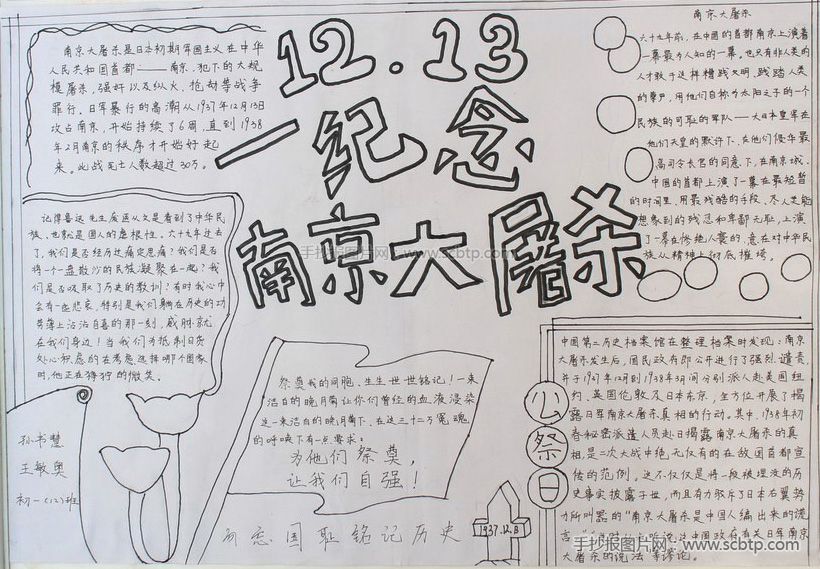 南京大屠杀是日本初期军国主义在中华
人民共和国首都——南京.犯下的大规
模屠杀,强奸以及纵火、抢劫等战争
罪行.日军暴行的高潮从1937年12月13日
攻占南京,开始持续了6周,直到1938
年2月南京的秩序才开始好起
来。此战死亡人数超过30万。
12.13
一纪念
南京大屠杀
南京大屠杀
六十九年前,在中国的首都南京上演着
一幕最为人知的一幕。也只有非人类的
人才敢于这样糟践文明,践踏人类
的尊严,用他们自称为太阳之子的一个
民族的可耻的军队——大日本皇军在
他们天皇的默许下、在他们侵华最
高司令长官的同意下,在南京城、
中国的首都上演了一幕在最短暂
的时间里,用最残酷的手段、尽人类能
想象到的残忍和卑鄙无耻,上演
了一幕在惨绝人寰的,意在对中华民
族从精神上彻底摧垮。
记得鲁迅先生废医从文是看到了中华民
族、也就是国人的磨根性。六十九年过去
了,我们是否经历过痛定思痛?我们是否
将一个盘散沙的民族凝聚在一起?我
们是否吸取了历史的教训?有时我心中
会有一丝悲哀,特别是我们躺在历史的功
劳薄上沾沾自喜的那一刻,威胁就
在我们身边!当我们为抵制日货
处心积虑的在考虑选择哪个国家
时,他正在狰狞的微笑。
手抄报图片网:www.scbtp.com
祭奠我的同胞、生生世世铭记!一束
洁白的晚月菊让你们曾经的血液浸染
这一束洁白的晚月菊下,在这三十二万冤魂
的呼唤下有一点要求:
为他们祭奠,
让我们自强!
孙书慧
王敏奥
初一(12)班
勿忘国耻铭记历史
1937.12.13
公祭日
中国第二历史档案馆在整理档案时发现:南京
大屠杀发生后,国民政府即公开进行了强烈谴责,
并于1937年12月到1938年3月间分别派人赴美国纽
约、英国伦敦及日本东京,全方位开展了揭
露日军南京大屠杀真相的行动。其中,1938年初
春秘密派遣人员赴日揭露南京大屠杀的真
相,是二次大战中绝无仅有的在敌国首都宣
传的范例。这不仅仅是将一段被埋没的历
史事实披露于世,而且有力驳斥了日本右翼势
力所叫嚣的"南京大屠杀是中国人编出来的谎
大屠杀的说法等谬论。
手抄报图片网:www.scbtp.com